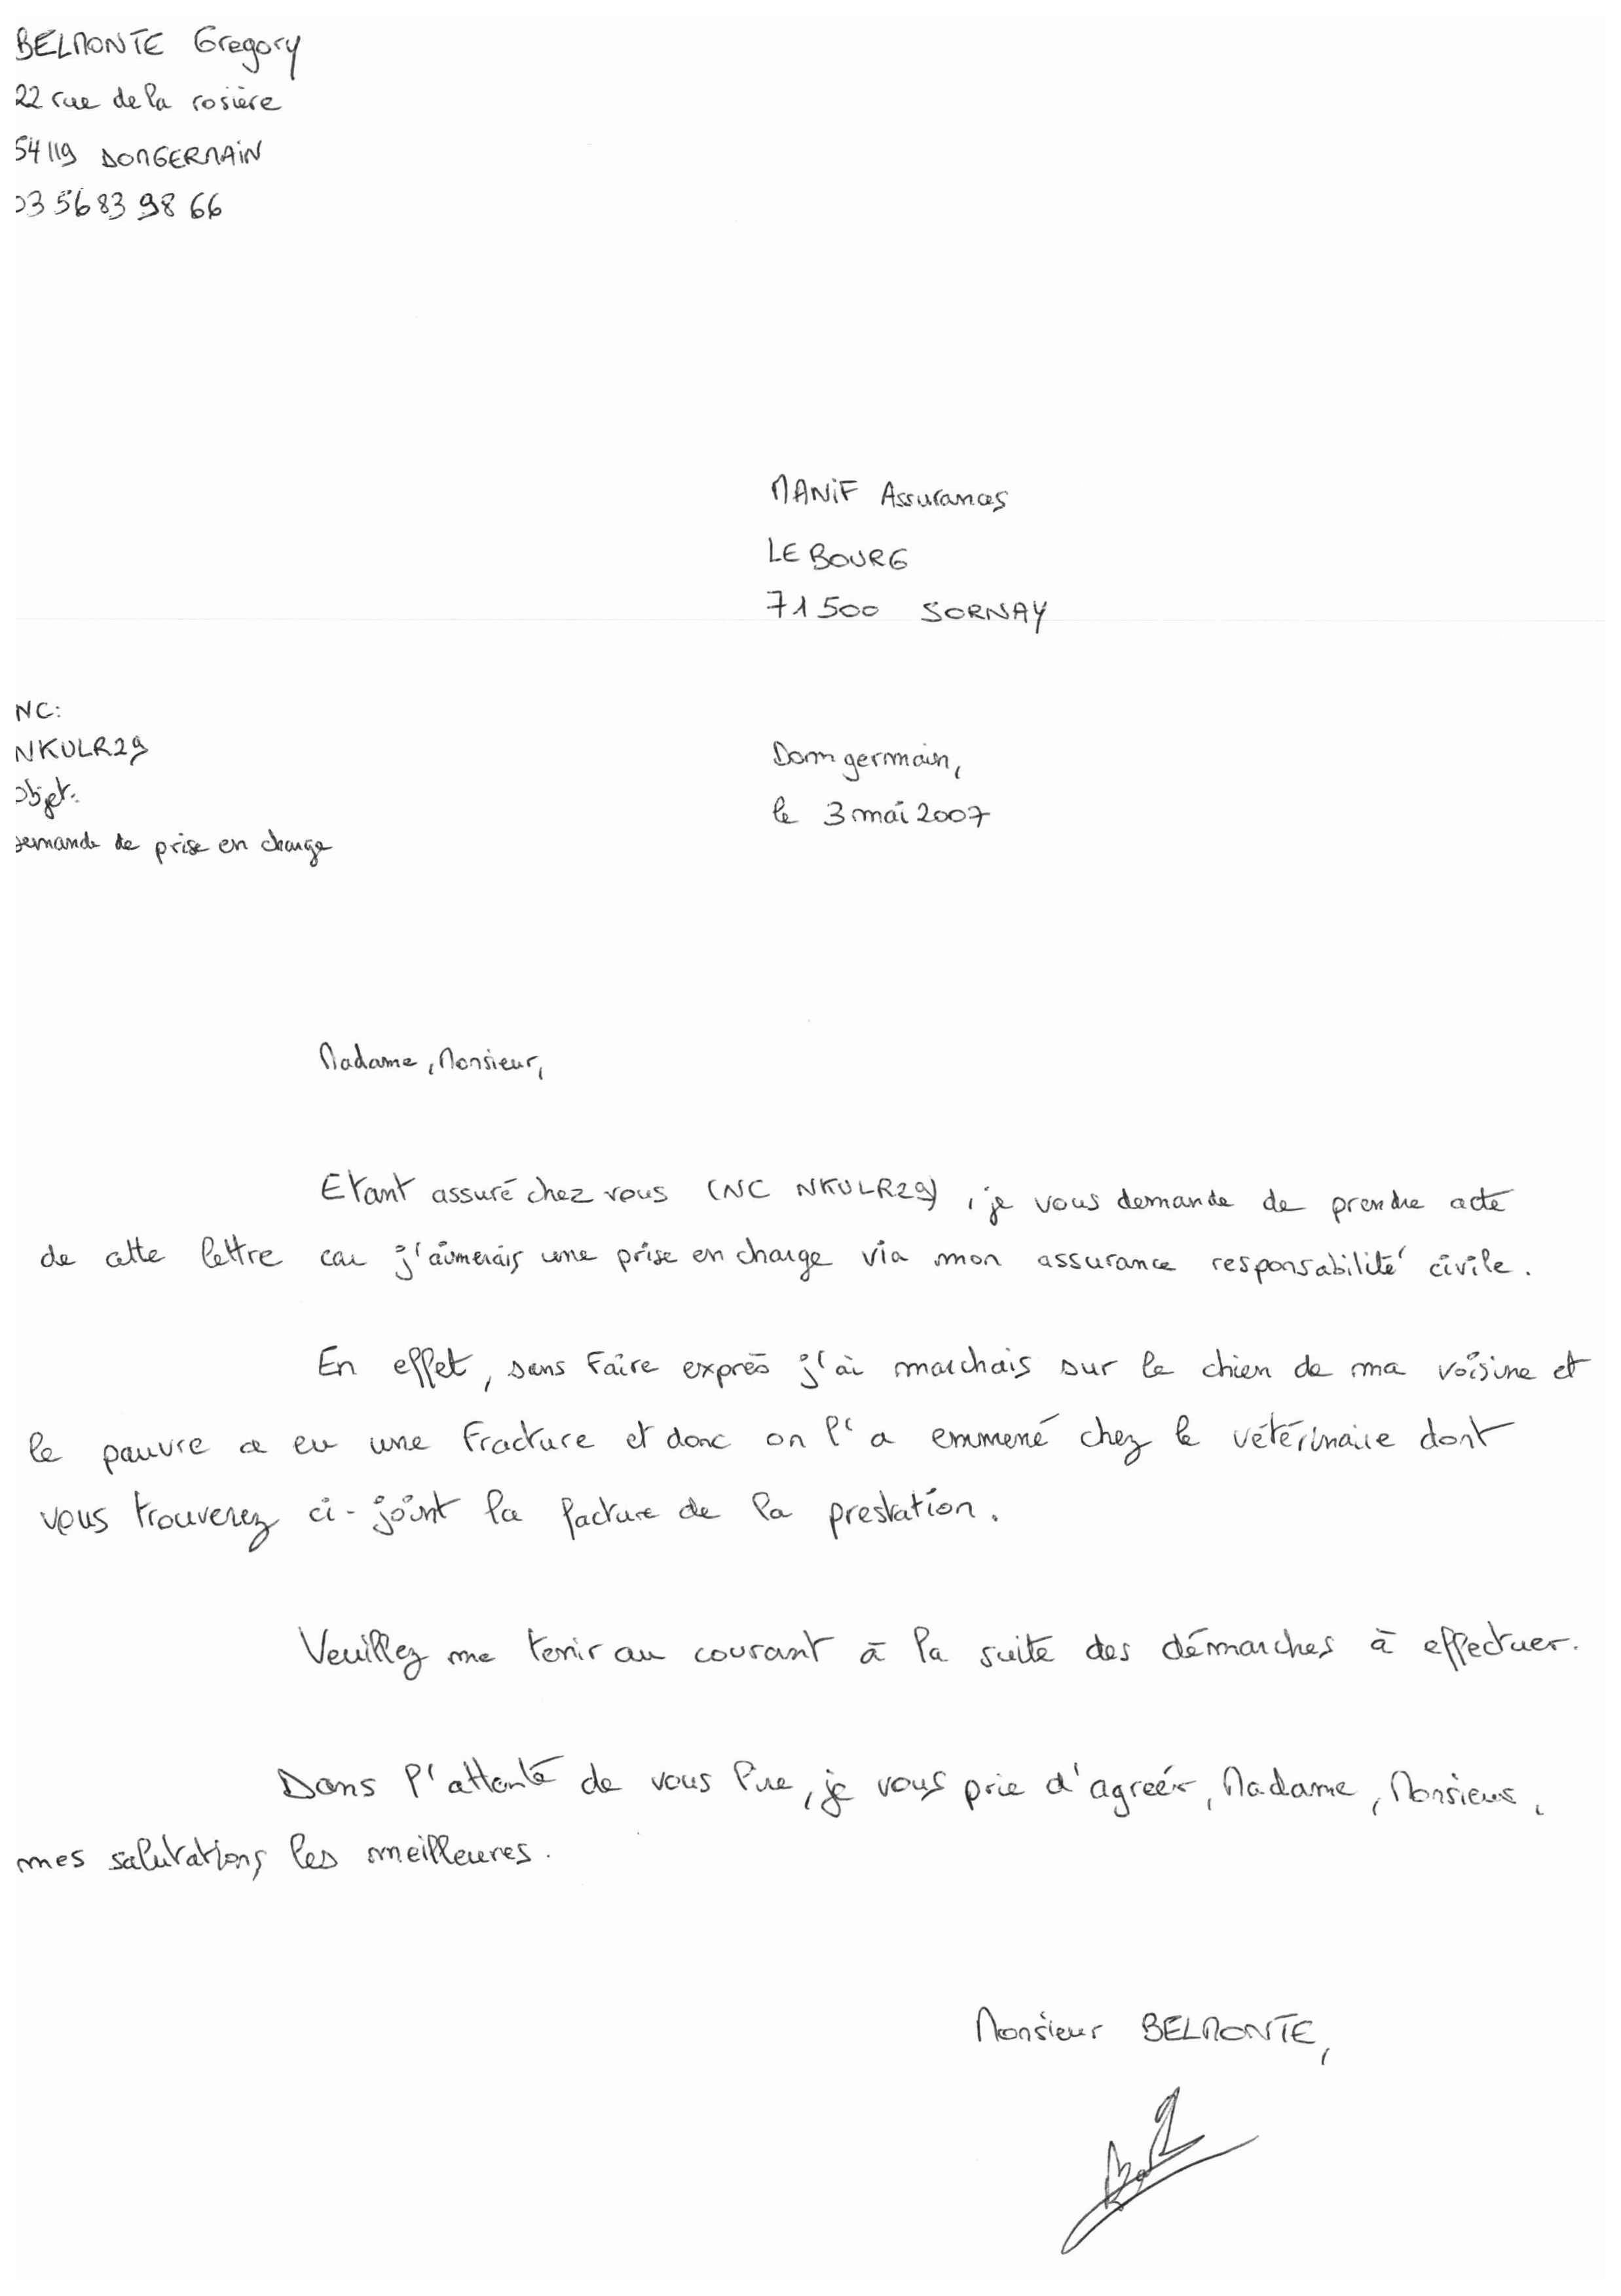 BELMONTE Gregory
22 rue de la rosière
54119 DOMGERMAIN
03 56 83 98 66
MANIF Assurances
LE BOURG
71500 SORNAY
NC:
NKULR29
Objet:
Demande de prise en charge
Domgermain,
le 3 mai 2007
Madame, Monsieur,
Etant assuré chez vous (NC NKULR29), je vous demande de prendre acte
de cette lettre car j'aimerais une prise en charge via mon assurance responsabilité civile.
En effet, sans faire exprès j'ai marchais sur le chien de ma voisine et
le pauvre a eu une fracture et donc on l'a emmené chez le vétérinaire dont
vous trouverez ci-joint la facture de la prestation.
Veuillez me tenir au courant à la suite des démarches à effectuer.
Dans l'attente de vous lire, je vous prie d'agréer, Madame, Monsieur,
mes salutations les meilleures.
Monsieur BELMONTE,